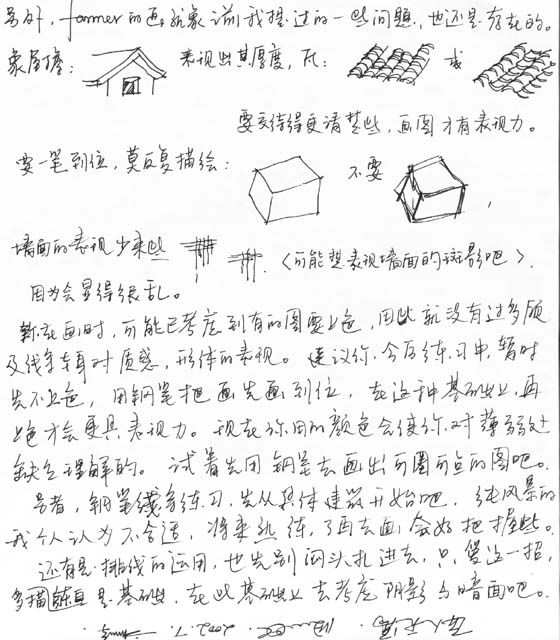 另外，farmer 的画，就象之前我提过的一些问题，也还是存在的。
象屋檐： 表现出其厚度，瓦： 或
要交待得更清楚些，画图才有表现力。
要一笔到位，莫反复描绘： 不要 ，
墙面的表现少来些 〈可能想表现墙面的斑影吧〉.
因为会显得很乱。
你在画时，可能已考虑到有的图要上色，因此就没有过多顾
及线条本身对质感，形体的表现。建议你，今后练习中，暂时
先不上色，用钢笔把画先画到位，在这种基础上，再
上色才会更具表现力。现在你用的颜色会使你对薄弱处
缺乏理解的。试着先用钢笔去画出可圈可点的图吧。
另者，钢笔线条练习，先从具体建筑开始吧，纯风景的
我个人认为不合适，将来熟练，了再去画，会好把握些。
还有是排线的运用，也先别闷头扎进去，只管这一招，
多描 是基础，在此基础上去考虑阴影与暗面吧。
2002.7.